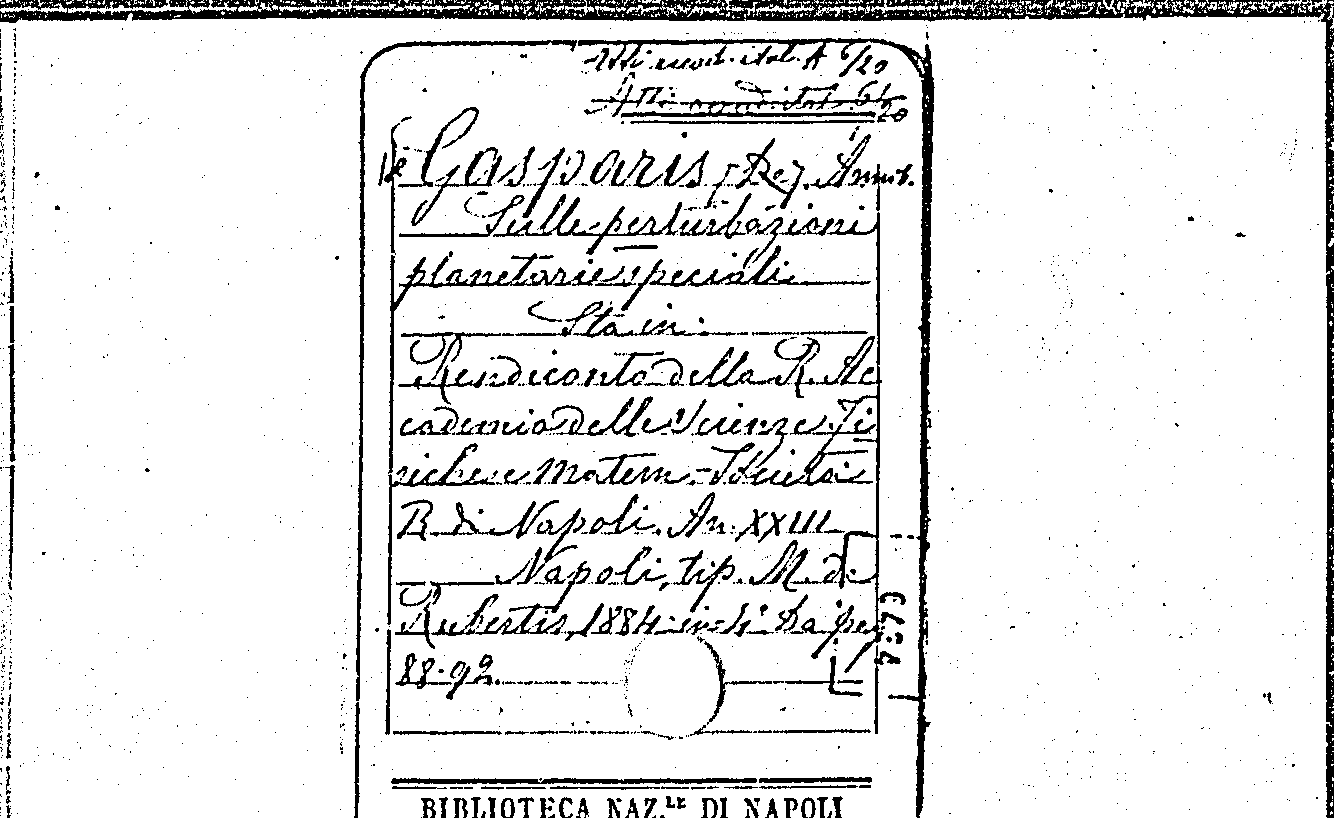 Atti accad. ital. A 6/20
Atti accad. ital. 61/20
De Gasparis [De]. Annib.
Sulle perturbazioni
planetarie speciali.
Sta in:
Rendiconto della R. Ac
cademia delle Scienze Fi
siche e Matem. - Società
R. di Napoli. An. XXIII
Napoli, tip. M. de
Rubertis, 1884 in-4° Da pag
88-92.
BIBLIOTECA NAZ.LE DI NAPOLI